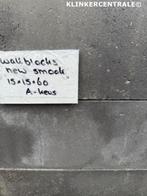 KLINKERCENTRALE®
wallblocks
new smook
15x15x60
A-keus